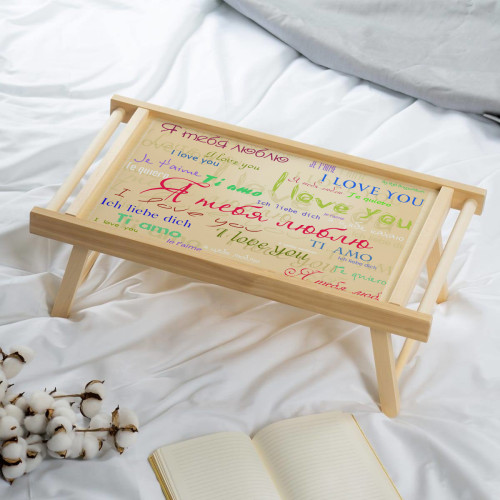 Я тебя люблю
JE T'AIME
I love you
I love you
I LOVE YOU
Je t'aime
Te quiero
Te quiero
Ti amo
I love you
Я тебя люблю
Ich liebe dich
I love you
Ich liebe dich
I love you
TI AMO
Ti amo
Ich liebe dich
Je t'aime
Te quiero
Я тебя люб